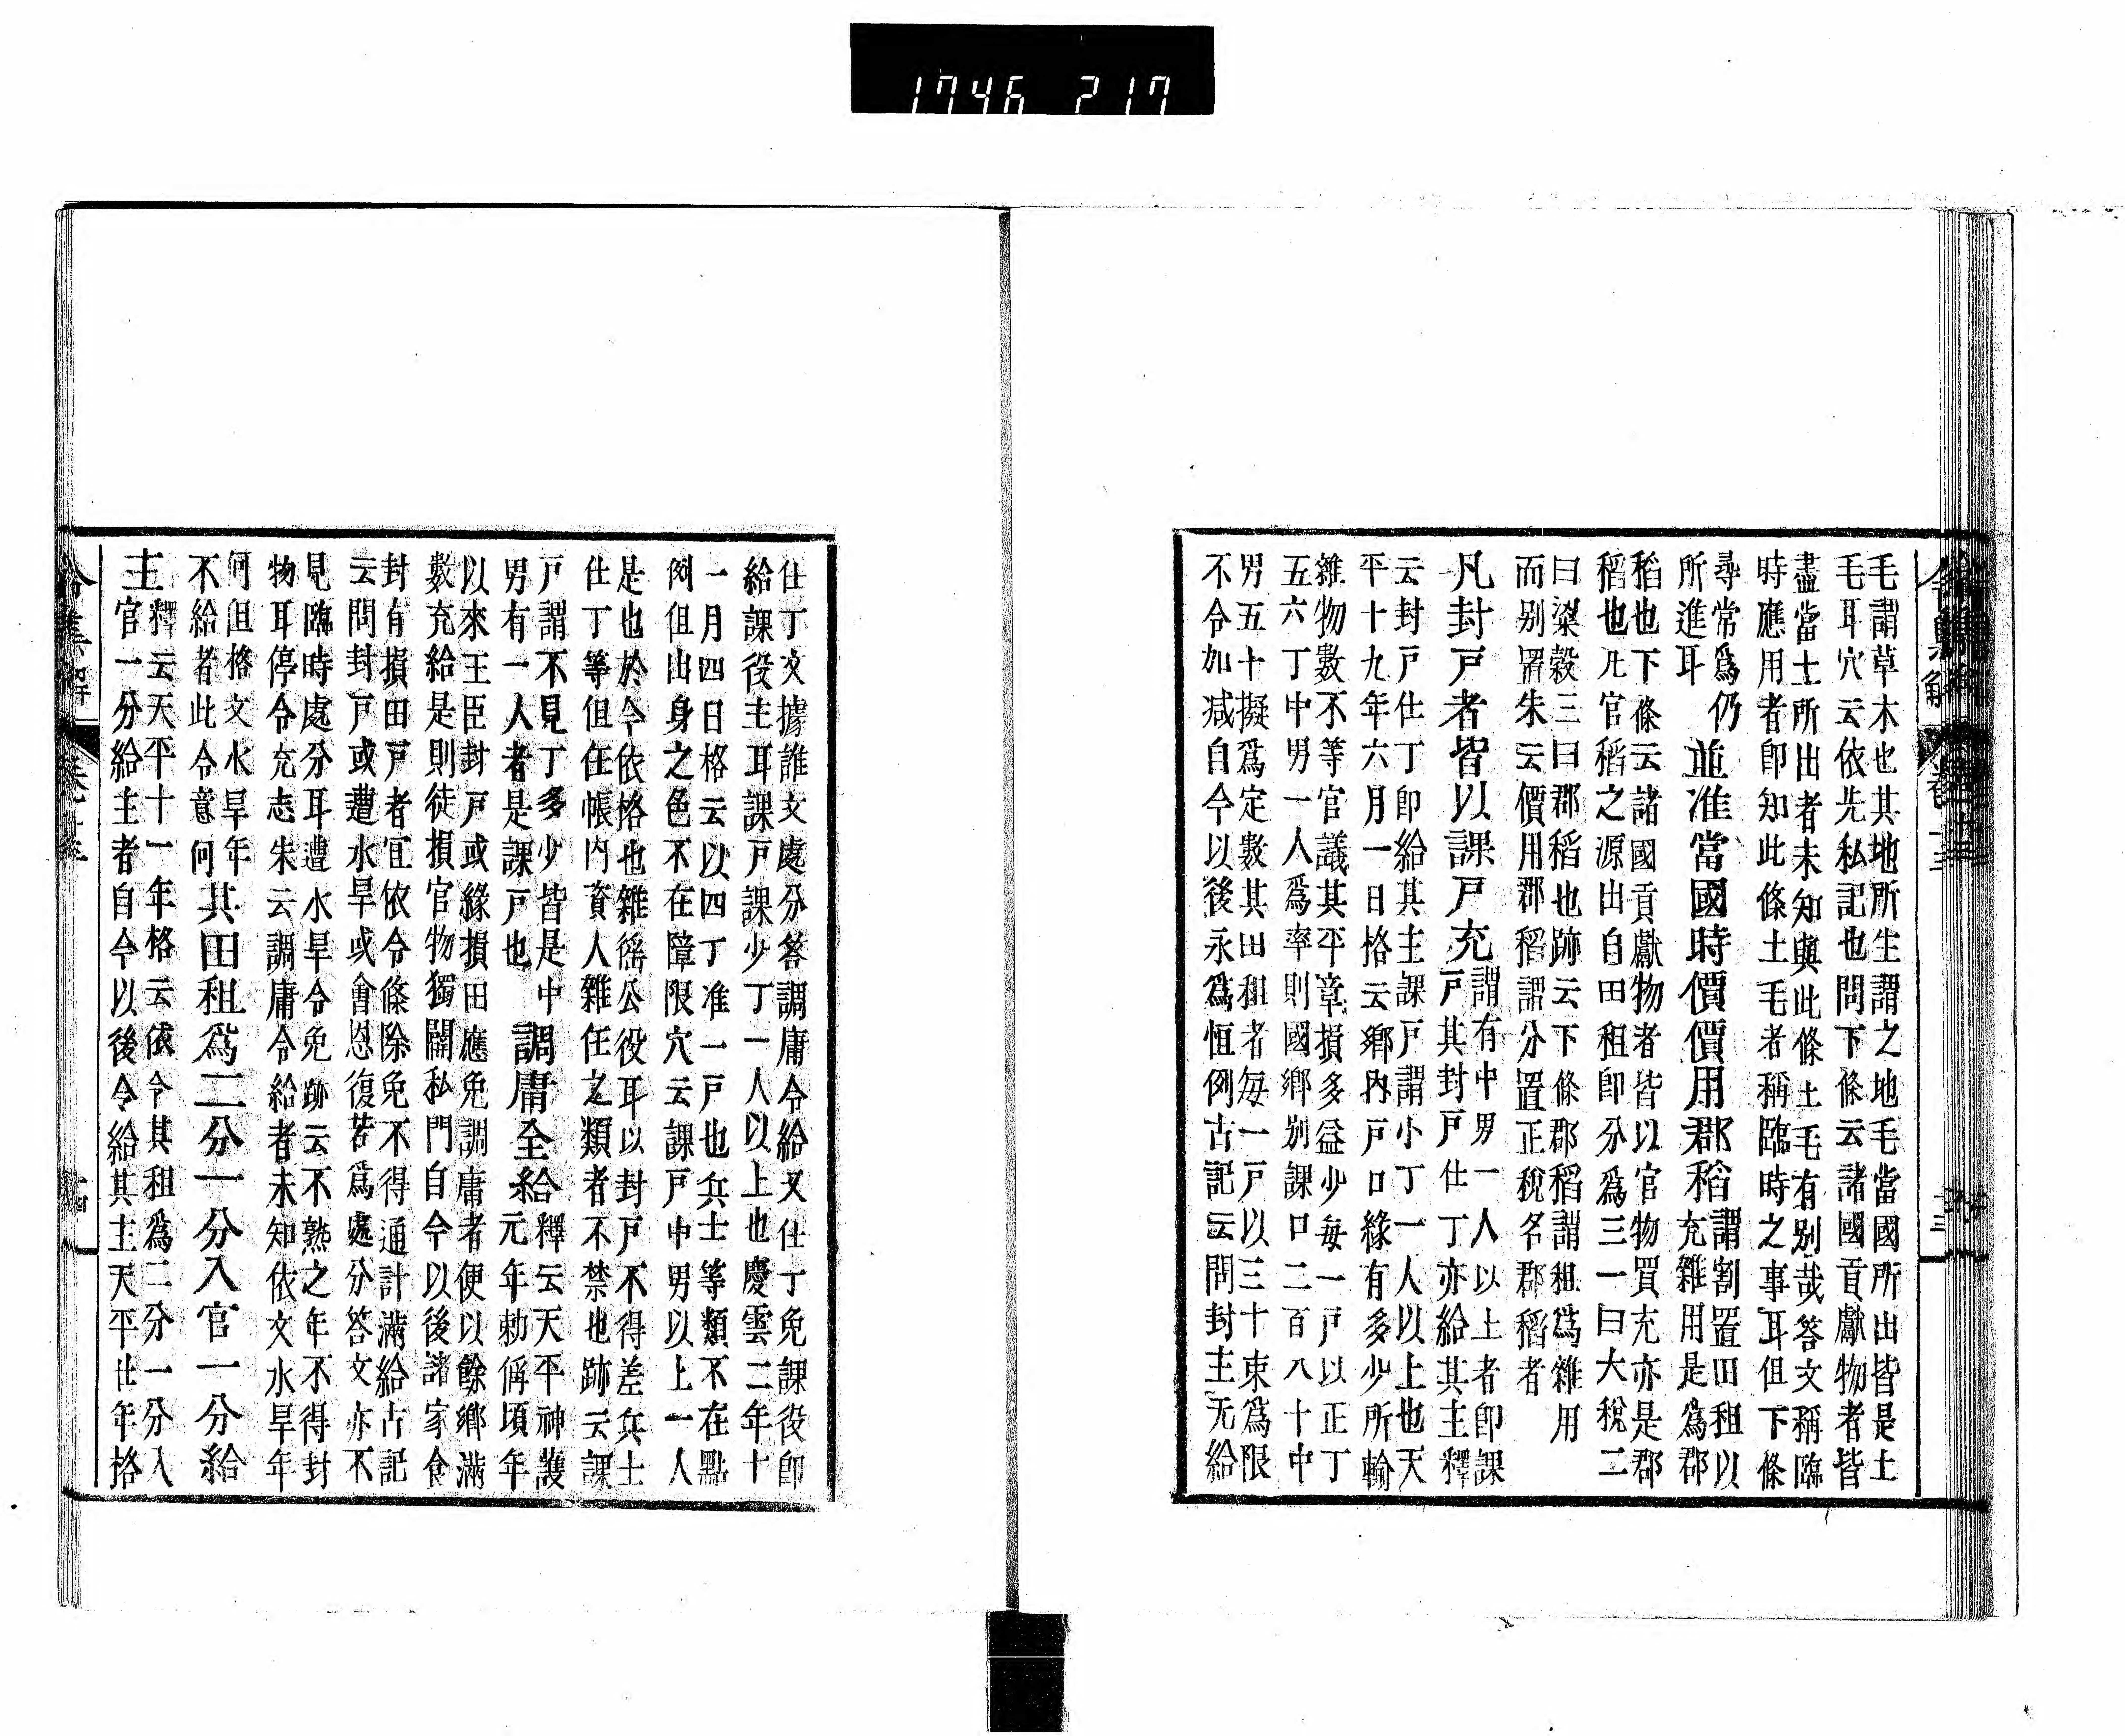 1746 217
毛謂草木也其地所生謂之地毛當國所出皆是土
毛耳穴云依先私記也問下條云諸國貢獻物者皆
盡當土所出者未知與此條土毛有別哉答文稱臨
時應用者卽知此條土毛者稱臨時之事耳但下條
尋常爲仍
所進耳
並准當國時價價用郡稻
謂割置田租以
充雜用是爲郡
稻也下條云諸國貢獻物者皆以官物買充亦是郡
稻也凡官稻之源出自田租卽分爲三一曰大稅二
曰㮣穀三曰郡稻也跡云下條郡稻謂租爲雜用
而別置朱云價用郡稻謂分置正稅名郡稻者
凡封戸者皆以課戸充
謂有中男一人以上者卽課
戸其封戸仕丁亦給其主釋
云封戸仕丁卽給其主課戸謂小丁一人以上也天
平十九年六月一日格云鄉內戸口緣有多少所輸
雜物數不等官議其平章損多益少每一戸以正丁
五六丁中男一人爲率則國鄉別課口二百八十中
男五十擬爲定數其田租者每一戸以三十束爲限
不令加减自今以後永爲恒例古記云問封主无給
仕丁文據誰文處分答調庸令給又仕丁免課役卽
給課役主耳課戸課少丁一人以上也慶雲二年十
一月四日格云以四丁准一戸也兵士等類不在點
例但出身之色不在障限穴云課戸中男以上一人
是也於今依格也雜徭公役耳以封戸不得差兵士
仕丁等但任帳內資人雜任之類者不禁也跡云課
戸謂不見丁多少皆是中
男有一人者是課戸也
調庸全給
釋云天平神護
元年勅偁頃年
以來王臣封戸或緣損田應免調庸者便以餘鄉滿
數充給是則徒損官物獨關私門自今以後諸家食
封有損田戸者宜依令條除免不得通計滿給古記
云問封戸或遭水旱或會恩復若爲處分答文亦不
見臨時處分耳遭水旱令免跡云不熟之年不得封
物耳停令充志朱云調庸令給者未知依文水旱年
何但格文水旱年
不給者此令意何
其田租爲二分一分入官一分給
主
釋云天平十一年格云依令其租爲二分一分入
官一分給主者自今以後令給其主天平廿年格